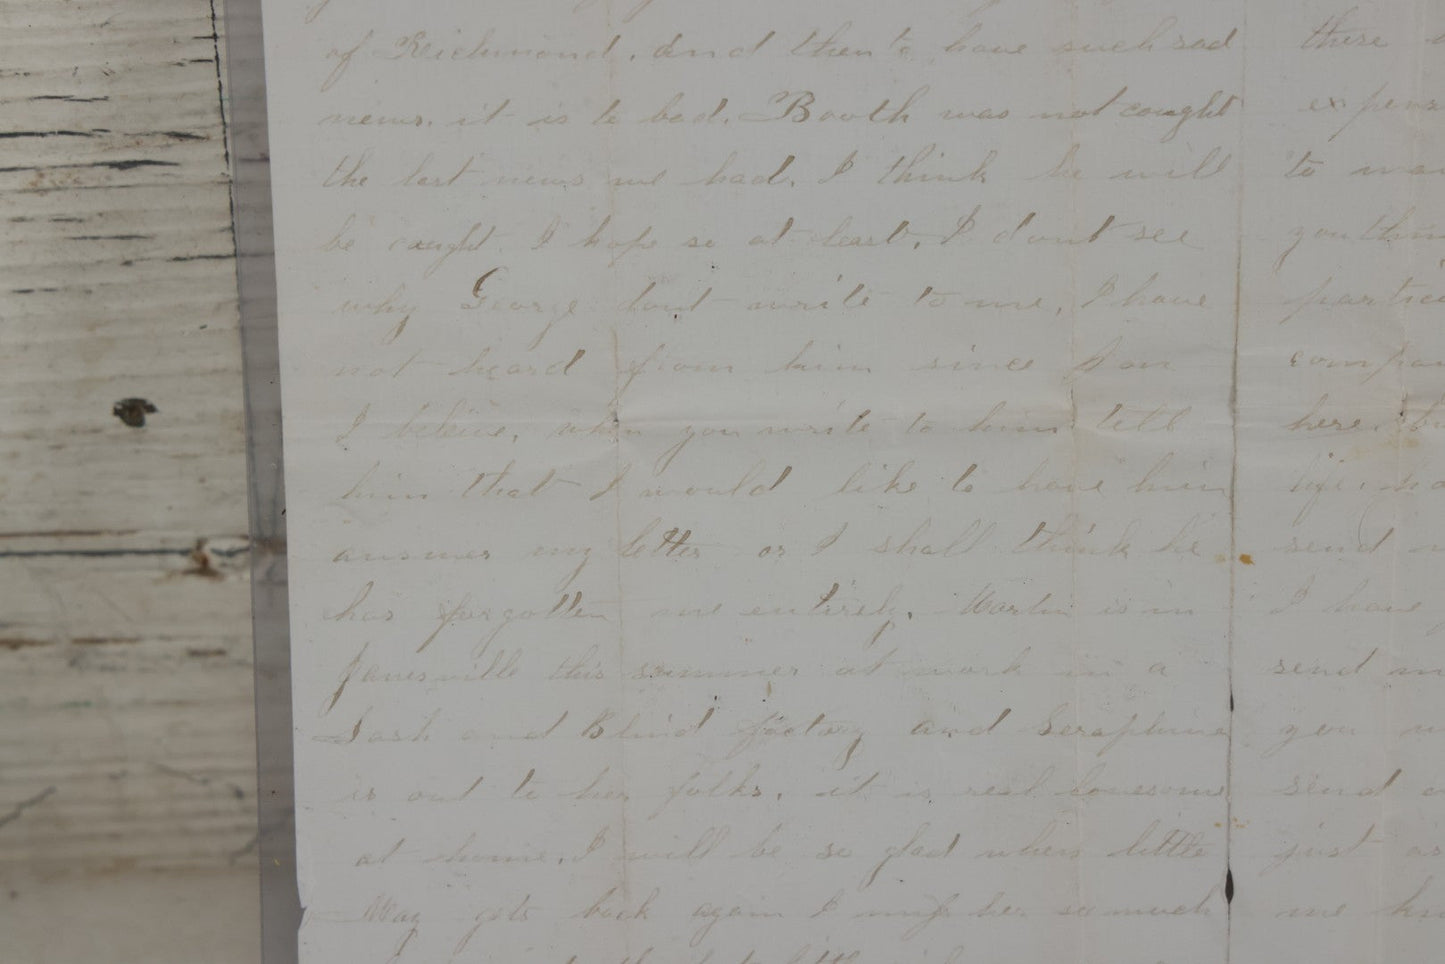 of Richmond. And then to have such sad
news. it is to bad. Booth was not caught
the last news we had. I think he will
be caught. I hope so at least. I dont see
why George dont write to me, I have
not heard from him since Jan
I beleive, when you write to him tell
him that I would like to have him
answer my letter or I shall think he
has forgotten me entirely. Martin is in
Janesville this summer at work in a
Sash and Blind factory and Seraphine
is out to her folks. it is real lonesome
at home. I will be so glad when little
May gets back again I miss her so much
there
expens
to
you thin
partic
compan
here.
life.
send
I have
send m
you
send
just as
me kn